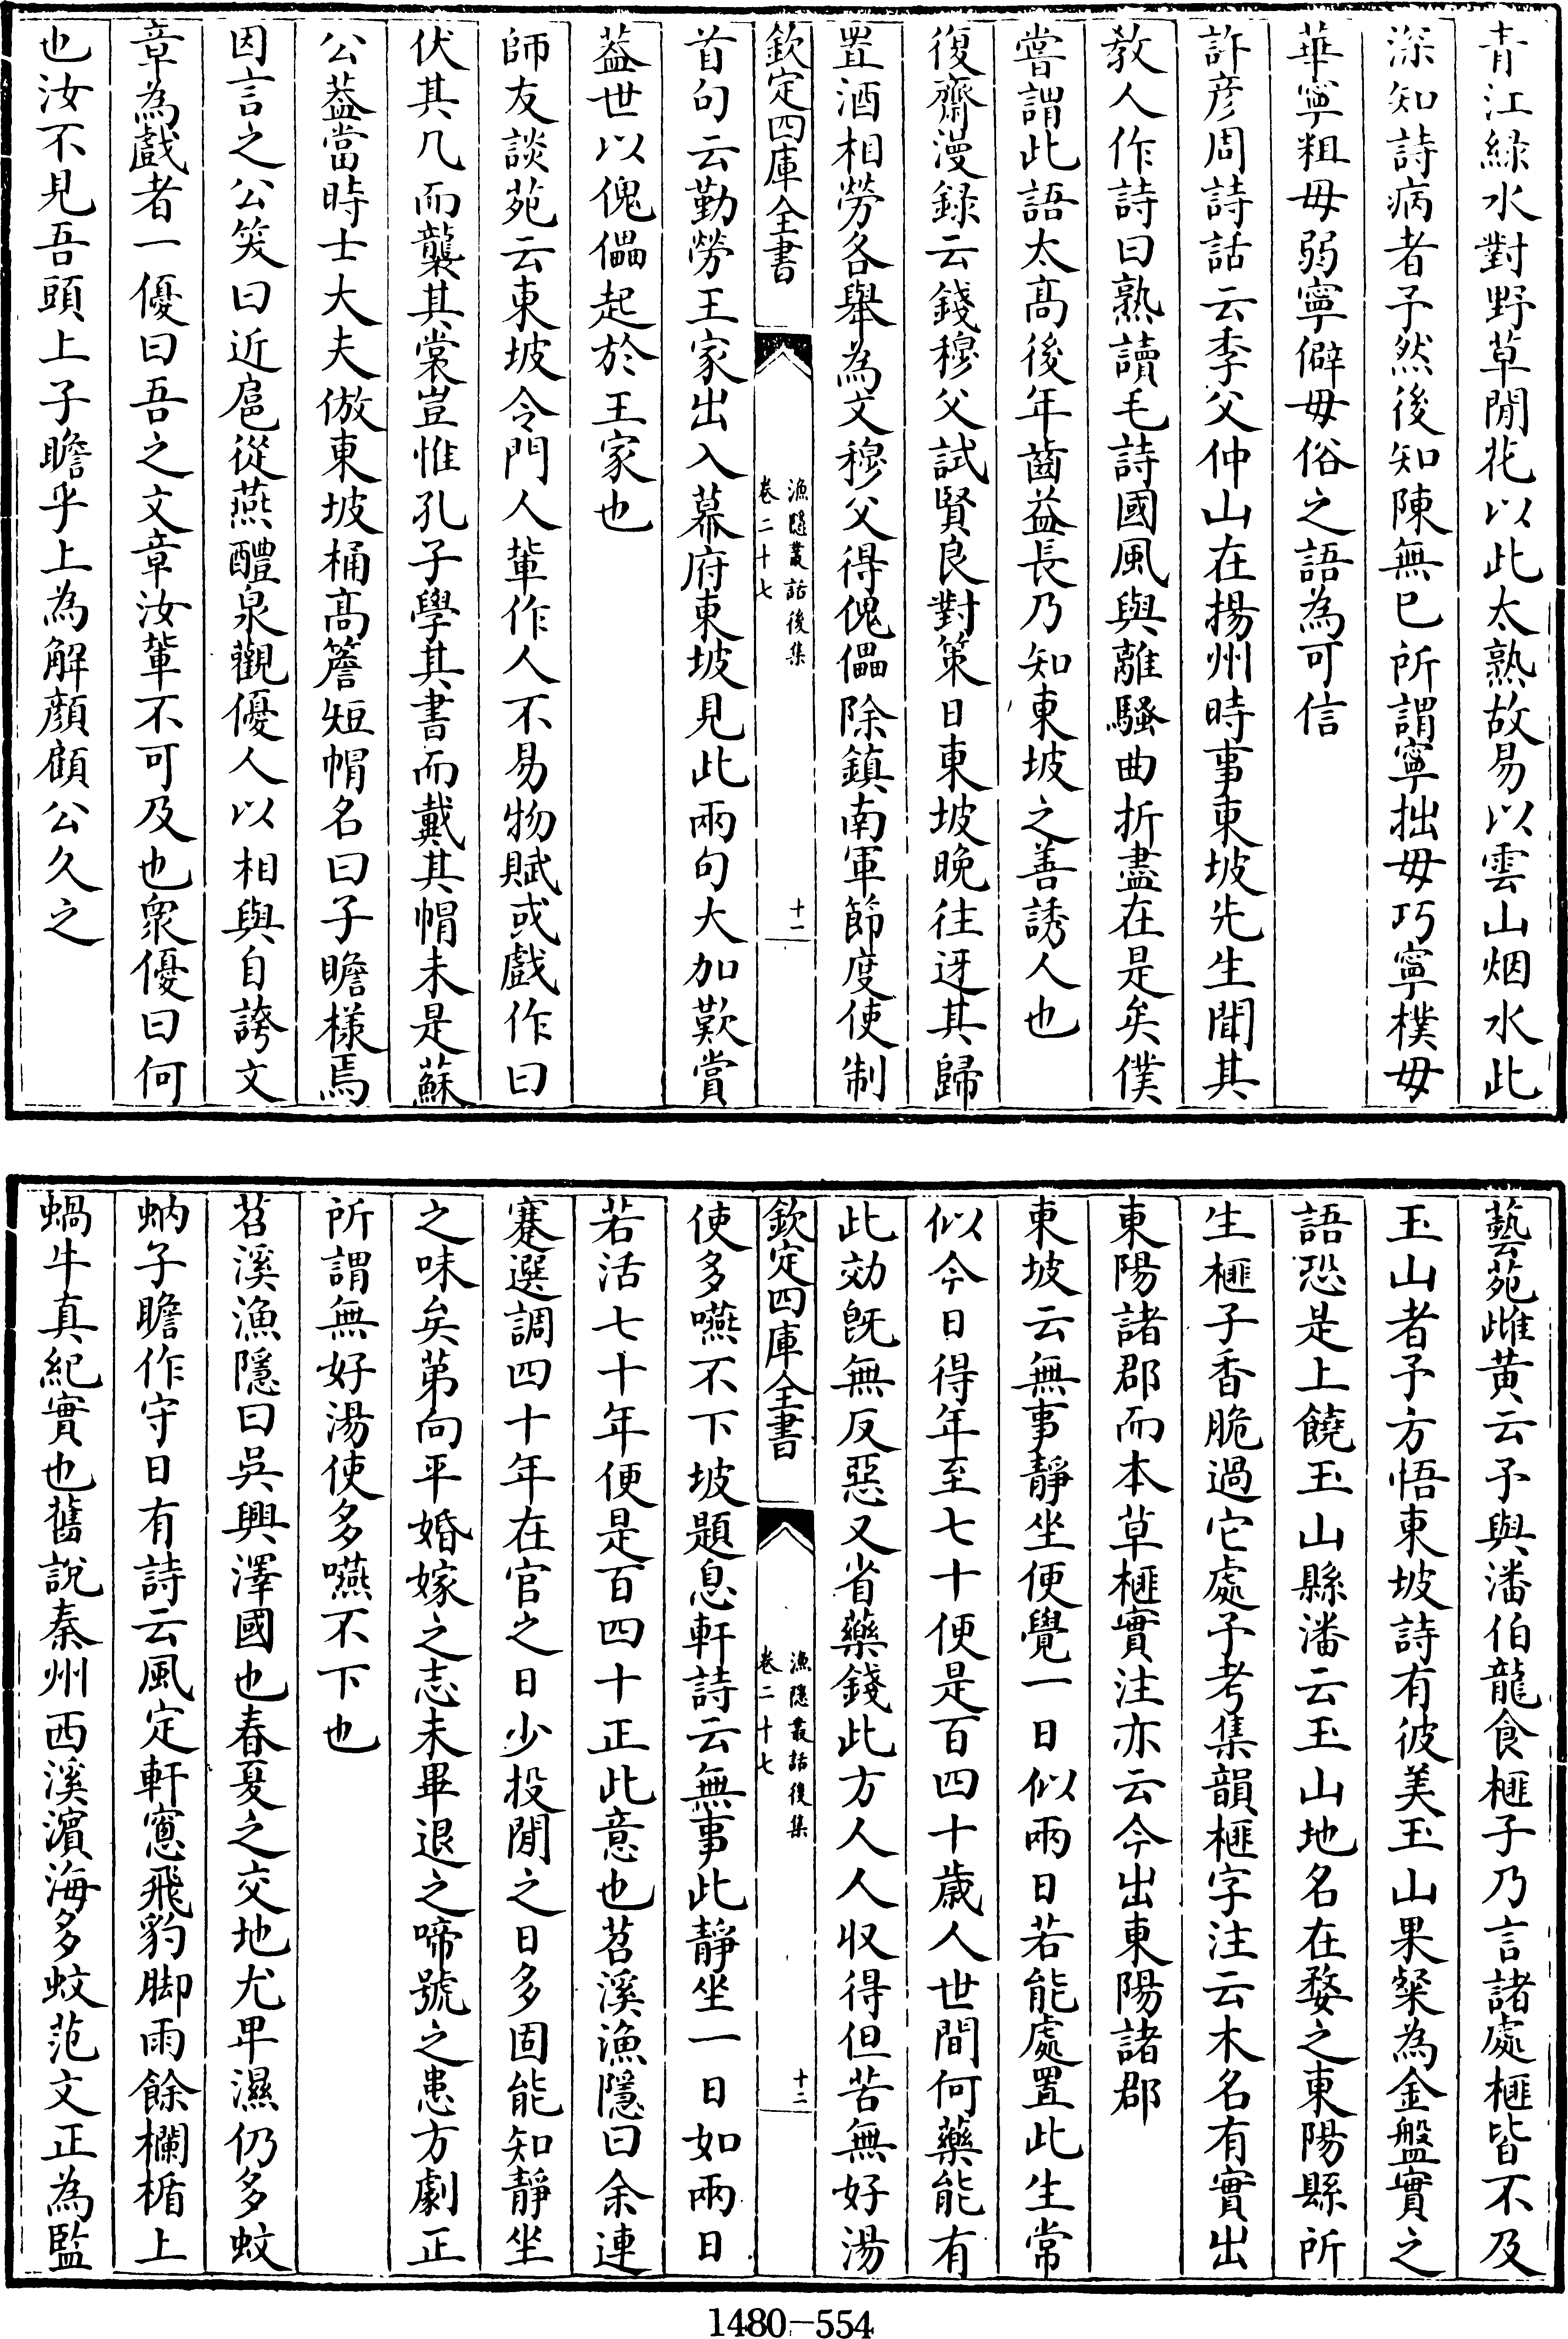 青江綠水對野草閒花以此太熟故易以雲山烟水此
深知詩病者予然後知陳無已所謂寧拙毋巧寧樸毋
華寧粗毋弱寧僻毋俗之語為可信
許彦周詩話云季父仲山在揚州時事東坡先生聞其
教人作詩曰熟讀毛詩國風與離騷曲折盡在是矣僕
嘗謂此語太髙後年齒益長乃知東坡之善誘人也
復齋漫録云錢穆父試賢良對策日東坡晚往迓其歸
置酒相勞各舉為文穆父得傀儡除鎮南軍節度使制
欽定四庫全書
漁隱叢話後集
卷二十七
十一
首句云勤勞王家出入幕府東坡見此兩句大加歎賞
葢世以傀儡起於王家也
師友談苑云東坡令門人輩作人不易物賦或戲作曰
伏其几而襲其裳豈惟孔子學其書而戴其帽未是蘇
公葢當時士大夫倣東坡桶髙簷短帽名曰子瞻樣焉
因言之公笑曰近扈從燕醴泉觀優人以相與自誇文
章為戲者一優曰吾之文章汝輩不可及也衆優曰何
也汝不見吾頭上子瞻乎上為解顔顧公久之
藝苑雌黄云予與潘伯龍食榧子乃言諸處榧皆不及
玉山者予方悟東坡詩有彼美玉山果粲為金盤實之
語恐是上饒玉山縣潘云玉山地名在婺之東陽縣所
生榧子香脆過它處予考集韻榧字注云木名有實出
東陽諸郡而本草榧實注亦云今出東陽諸郡
東坡云無事靜坐便覺一日似兩日若能處置此生常
似今日得年至七十便是百四十歲人世間何藥能有
此効旣無反惡又省藥錢此方人人収得但苦無好湯
欽定四庫全書
漁隱叢話後集
卷二十七
十二
使多嚥不下坡題息軒詩云無事此靜坐一日如兩日
若活七十年便是百四十正此意也苕溪漁隱曰余連
蹇選調四十年在官之日少投閒之日多固能知靜坐
之味矣第向平婚嫁之志未畢退之啼號之患方劇正
所謂無好湯使多嚥不下也
苕溪漁隱曰吳興澤國也春夏之交地尤卑濕仍多蚊
蚋子瞻作守日有詩云風定軒窻飛豹脚雨餘欄楯上
蝸牛真紀實也舊說秦州西溪濵海多蚊范文正為監
1480-554